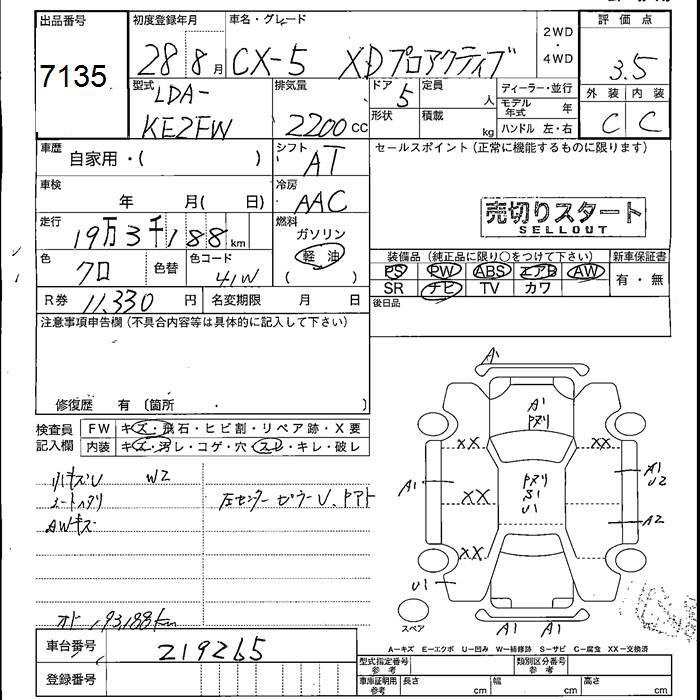 出品番号
7135
初度登録年月
28 8月
車名・グレード
CX-5 XDプロアクティブ
2WD
・
4WD
評価点
3.5
外装 内装
C C
型式
LDA-
KE2FW
排気量
2200cc
ドア
5
形状
定員
人
積載
kg
ディーラー・並行
モデル年式 年
ハンドル 左・右
車歴
自家用・( )
シフト
AT
セールスポイント(正常に機能するものに限ります)
車検
年 月( 日)
冷房
AAC
売切りスタート
SELLOUT
走行
19万3千188km
燃料
ガソリン
軽油
( )
色
クロ
色替
色コード
41W
装備品(純正品に限り○をつけて下さい)
新車保証書
PS PW ABS エアB AW
SR ナビ TV カワ
有・無
R券 11,330円
名変期限 月 日
後日品
注意事項申告欄(不具合内容等は具体的に記入して下さい)
修復歴 有〔箇所 ・ 〕
検査員
記入欄
FW キズ・飛石・ヒビ割・リペア跡・X要
内装 キズ・汚レ・コゲ・穴・スレ・キレ・破レ
リハキズU W2
シートヘタリ
AWキズ
左センターピラーU、ドアト
オド 193,188km
A1
A1
XX XX
A1
S1
U1
A1
XX
A1
U2
A2
XX
U1
A1 A1
スペア
A-キズ E-エクボ U-凹み W-補修跡 S-サビ C-腐食 XX-交換済
車台番号
219265
登録番号
型式指定番号
参考
類別区分番号
参考
車庫証明用
参考
長さ cm
幅 cm
高さ cm